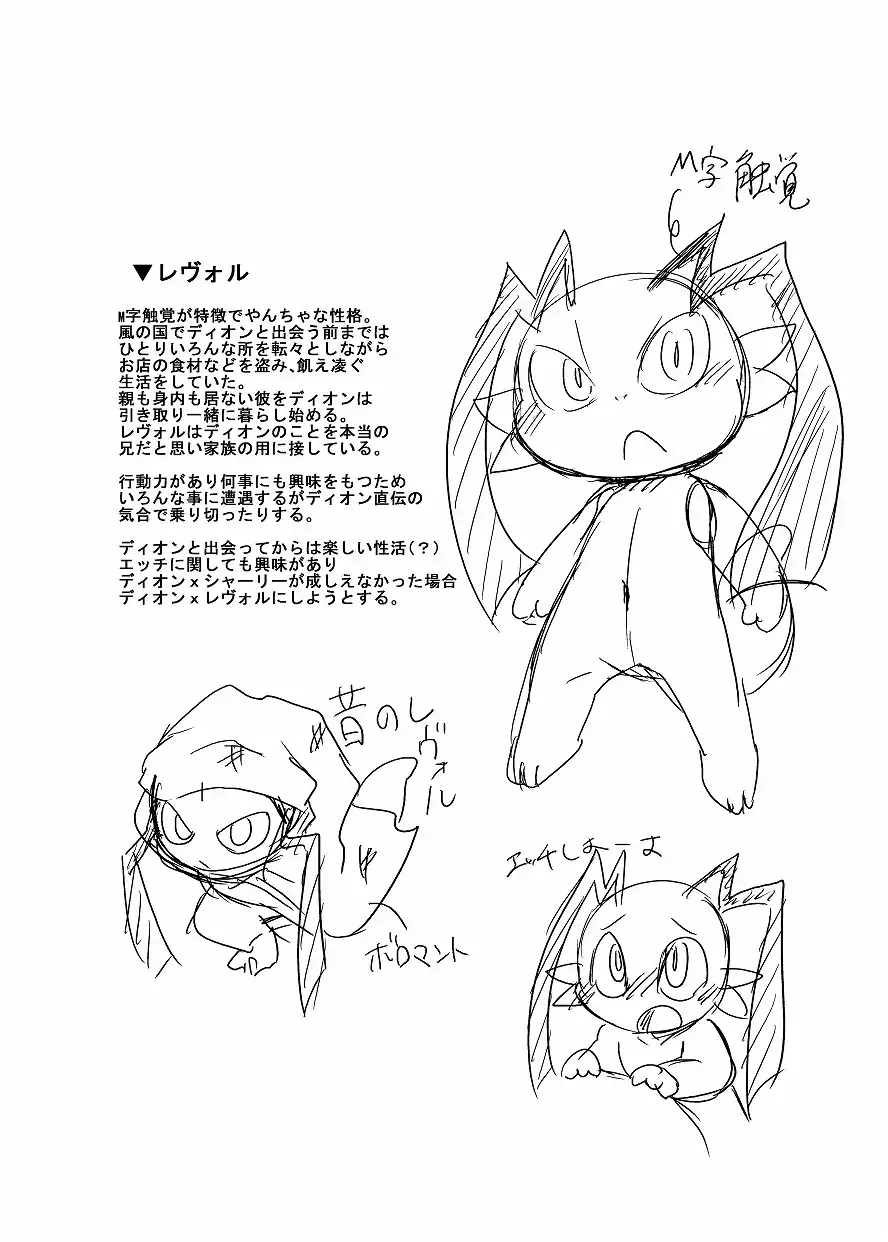 M字触覚
▼レヴォル
M字触覚が特徴でやんちゃな性格。
風の国でディオンと出会う前までは
ひとりいろんな所を転々としながら
お店の食材などを盗み、飢え凌ぐ
生活をしていた。
親も身内も居ない彼をディオンは
引き取り一緒に暮らし始める。
レヴォルはディオンのことを本当の
兄だと思い家族の用に接している。
行動力があり何事にも興味をもつため
いろんな事に遭遇するがディオン直伝の
気合で乗り切ったりする。
ディオンと出会ってからは楽しい性活(?)
エッチに関しても興味があり
ディオンxシャーリーが成しえなかった場合
ディオンxレヴォルにしようとする。
昔のレ
ヴォル
ボロマント
エッチしよーよ